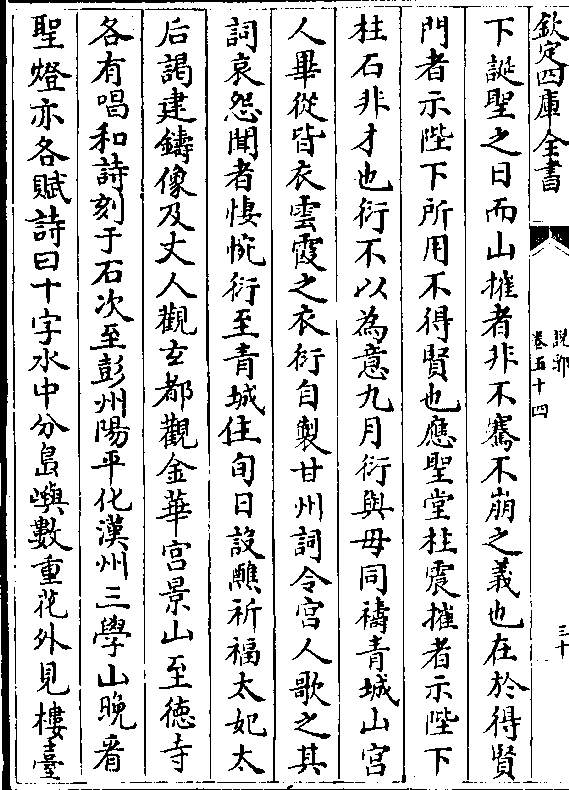 欽定四庫全書
說郛
卷五十四
三十
下誕聖之日而山摧者非不騫不崩之義也在於得賢
門者示陛下所用不得賢也應聖堂柱震摧者示陛下
柱石非才也衍不以為意九月衍與母同禱青城山宮
人畢從皆衣雲霞之衣衍自製甘州詞令宮人歌之其
詞哀怨聞者悽惋衍至青城住旬日設醮祈福太妃太
后謁建鑄像及丈人觀玄都觀金華宮景山至德寺
各有唱和詩刻于石次至彭州陽平化漢州三學山晚看
聖燈亦各賦詩曰十字水中分島嶼數重花外見樓臺